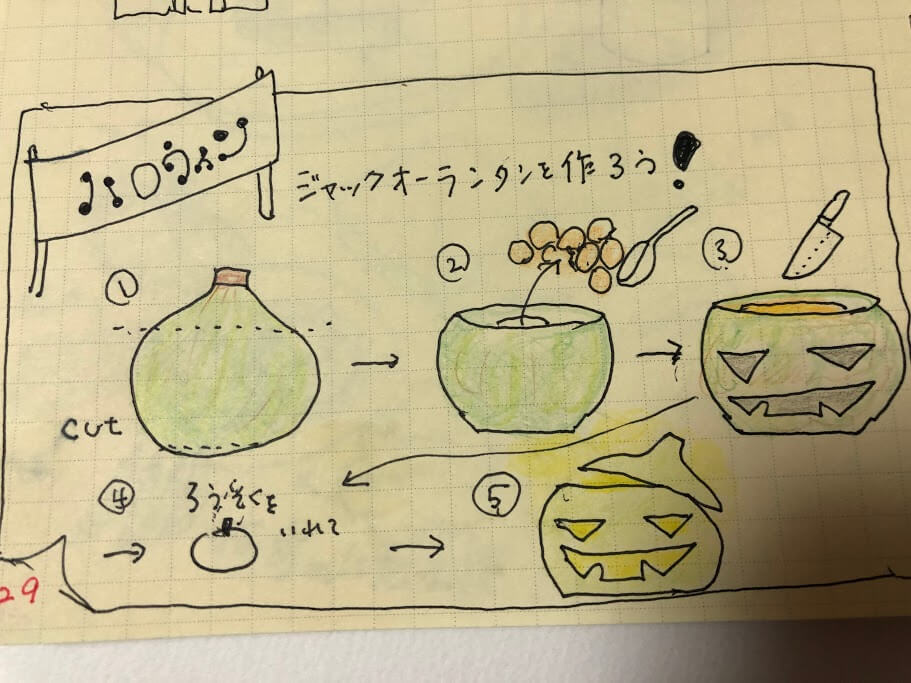 ハロウィン
ジャックオーランタンを作ろう!
①
②
③
cut
④
ろうそくを
いれて
⑤
29